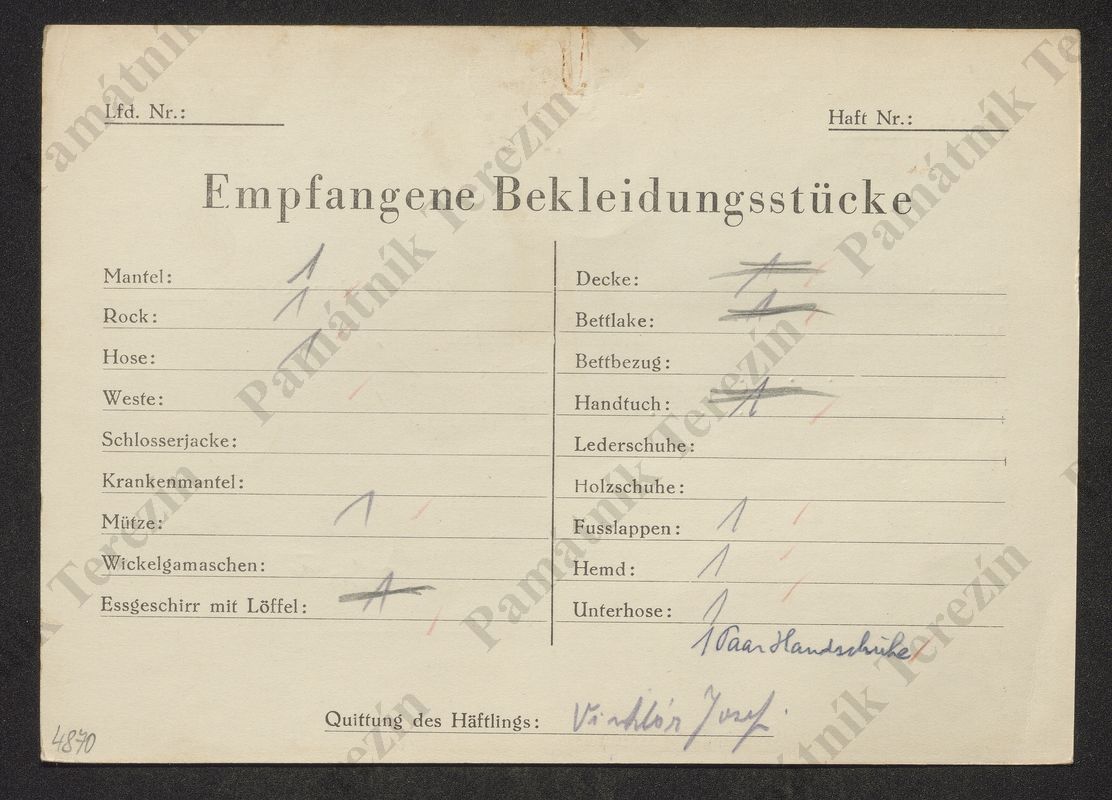 Lfd. Nr.:
Haft Nr.:
Empfangene Bekleidungsstücke
Mantel: 1
Rock: 1
Hose: 1
Weste:
Schlosserjacke:
Krankenmantel:
Mütze: 1
Wickelgamaschen:
Essgeschirr mit Löffel: 1
Decke: 1
Bettlake: 1
Bettbezug:
Handtuch: 1
Lederschuhe:
Holzschuhe:
Fusslappen: 1
Hemd: 1
Unterhose: 1
1 Paar Handschuhe
Quittung des Häftlings: Josef
4870
Památník Terezín